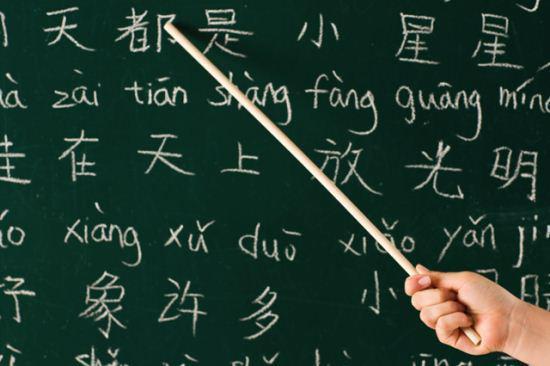 天 都 是 小 星 星
zài tiān shàng fàng guāng
在 天 上 放 光 明
xiàng xǔ duō xiǎo yǎn
象 许 多 小